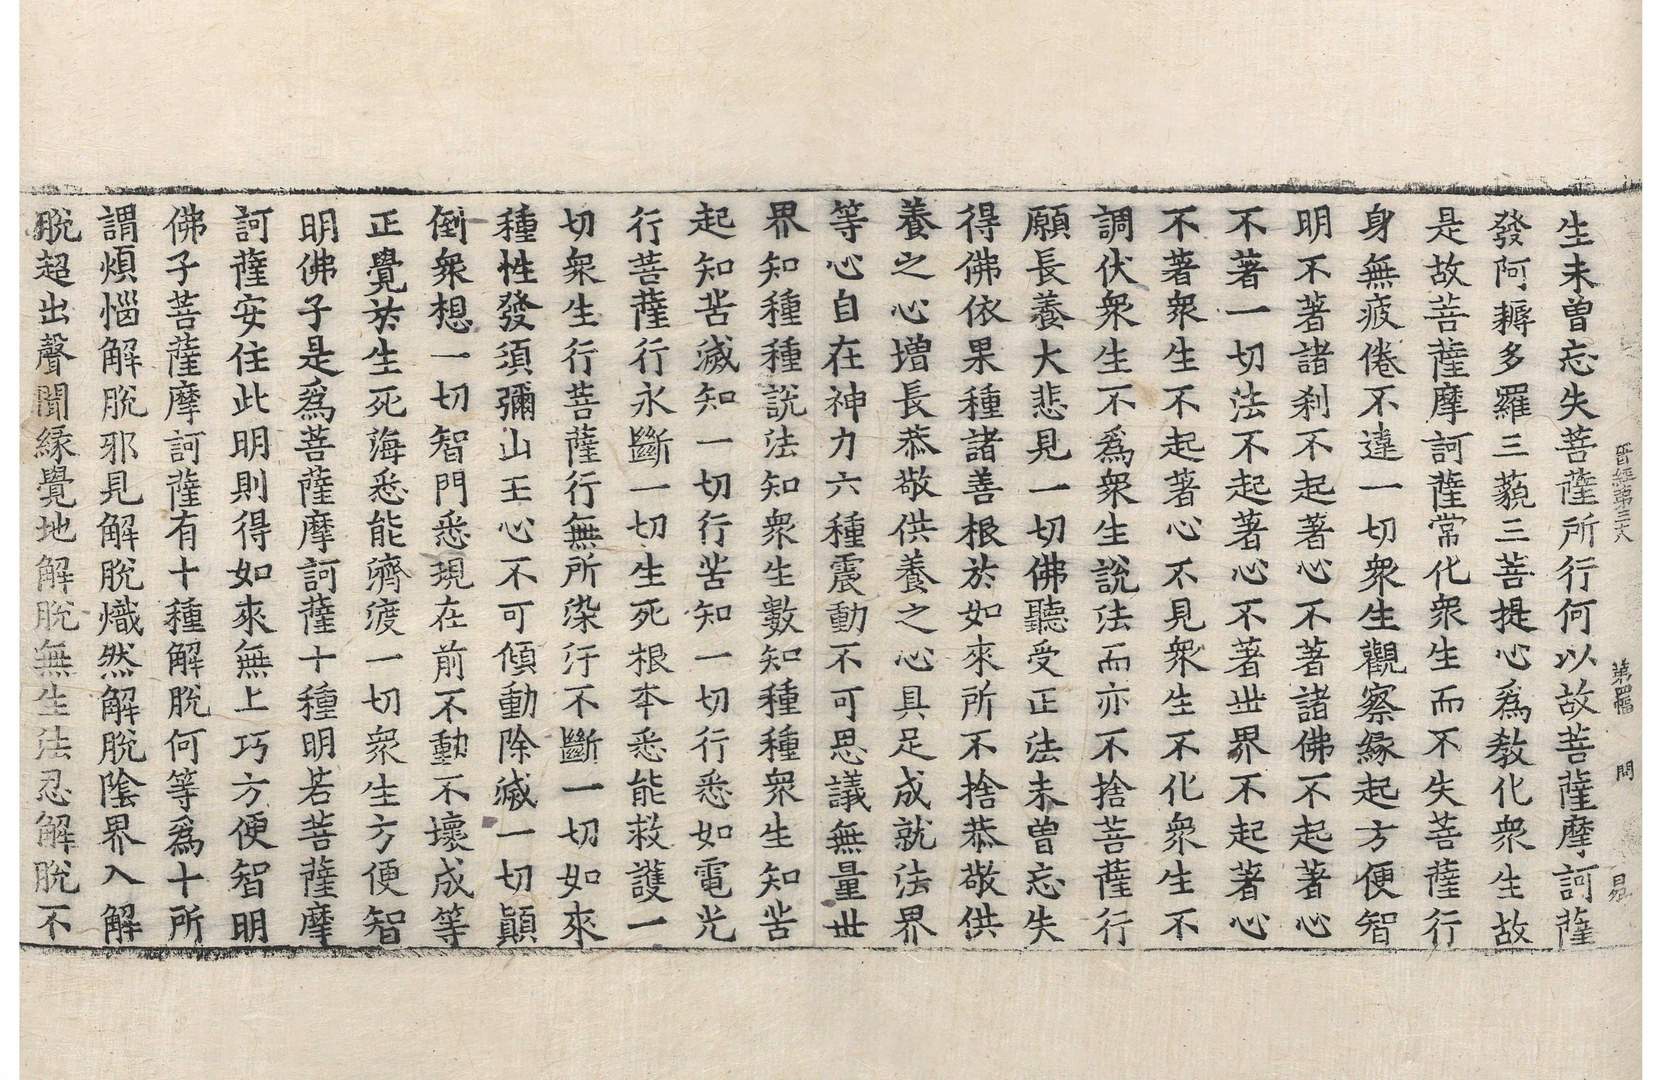 晉經第三十六 第四幅 問 昷
生未曾忘失菩薩所行何以故菩薩摩訶薩
發阿耨多羅三藐三菩提心爲教化衆生故
是故菩薩摩訶薩常化衆生而不失菩薩行
身無疲倦不違一切衆生觀察緣起方便智
明不著諸刹不起著心不著諸佛不起著心
不著一切法不起著心不著世界不起著心
不著衆生不起著心不見衆生不化衆生不
調伏衆生不爲衆生說法而亦不捨菩薩行
願長養大悲見一切佛聽受正法未曾忘失
得佛依果種諸善根於如來所不捨恭敬供
養之心增長恭敬供養之心具足成就法界
等心自在神力六種震動不可思議無量世
界知種種說法知衆生數知種種衆生知苦
起知苦滅知一切行苦知一切行悉如電光
行菩薩行永斷一切生死根本悉能救護一
切衆生行菩薩行無所染汙不斷一切如來
種性發須彌山王心不可傾動除滅一切顚
倒衆想一切智門悉現在前不動不壞成等
正覺於生死海悉能濟渡一切衆生方便智
明佛子是爲菩薩摩訶薩十種明若菩薩摩
訶薩安住此明則得如來無上巧方便智明
佛子菩薩摩訶薩有十種解脫何等爲十所
謂煩惱解脫邪見解脫熾然解脫陰界入解
脫超出聲聞緣覺地解脫無生法忍解脫不